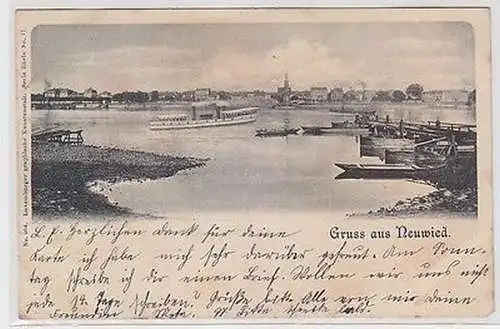 No. 464. Luxemburger graphische Kunstanstalt. Serie Rhein No. 17.
Gruss aus Neuwied.
L. F. Herzlichen dank für deine
Karte ich habe mich sehr darüber gefreut. Am Sonn-
tag schreibe ich dir einen Brief. Wollen wir uns nicht
jede 14 Tage schreiben? Grüße bitte Alle von mir deine
Freundin M. Bitte schreibe bald.